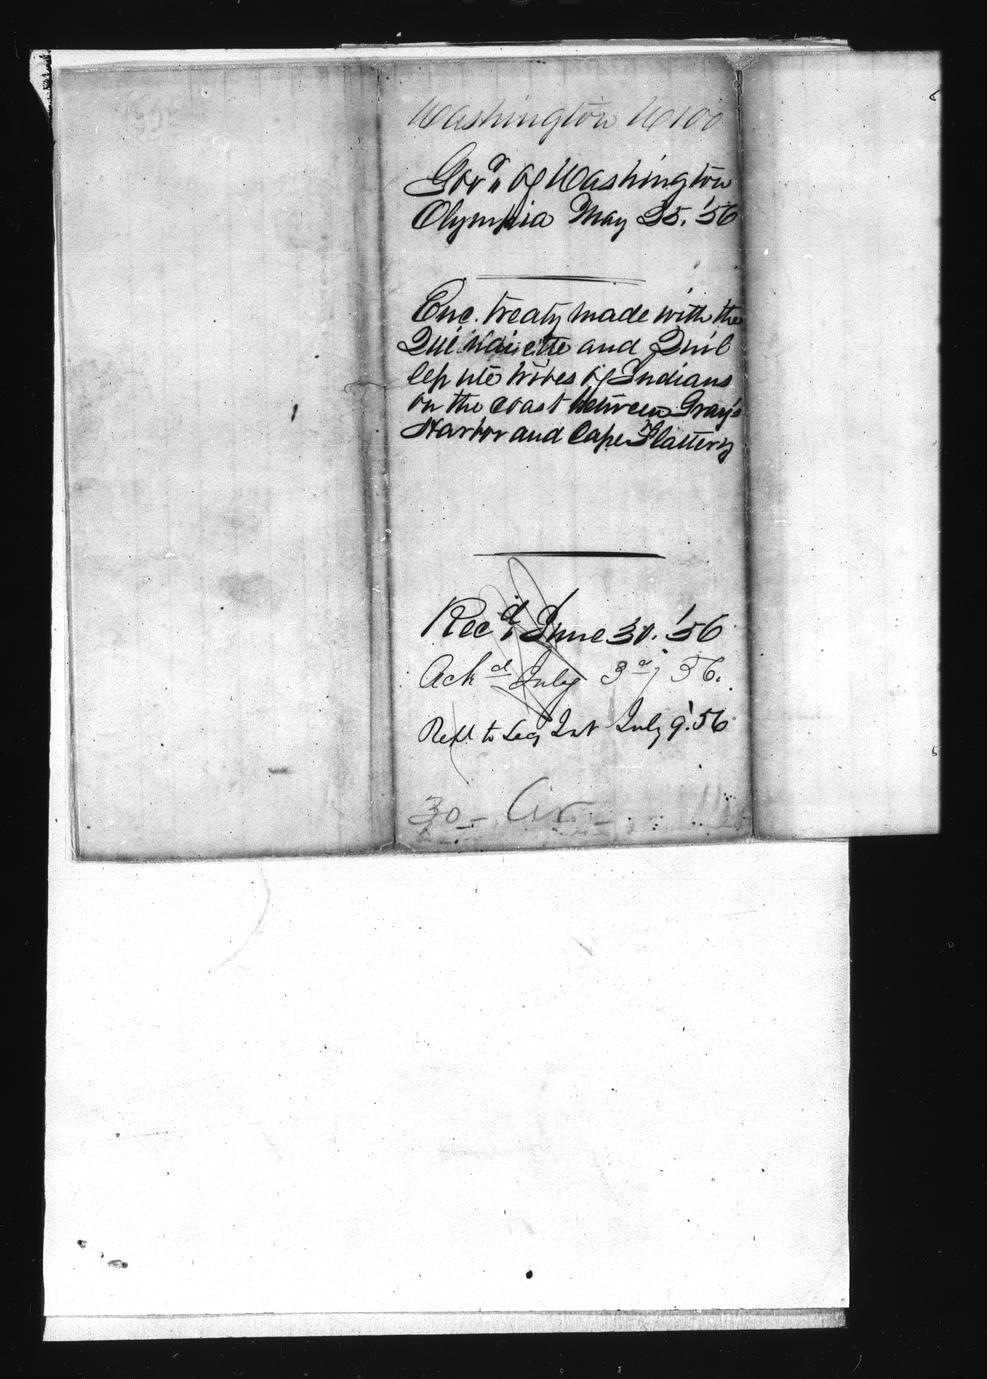 Washington W100
Gov'r of Washington
Olympia May 25. '56
Enc. treaty made with the
Qui'naiette and Quil
leh ute tribes of Indians
on the coast between Gray's
Harbor and Cape Flattery
Rec'd June 30. '56
Ack'd July 3d, 56.
to Secy Int July 9. '56
30 -